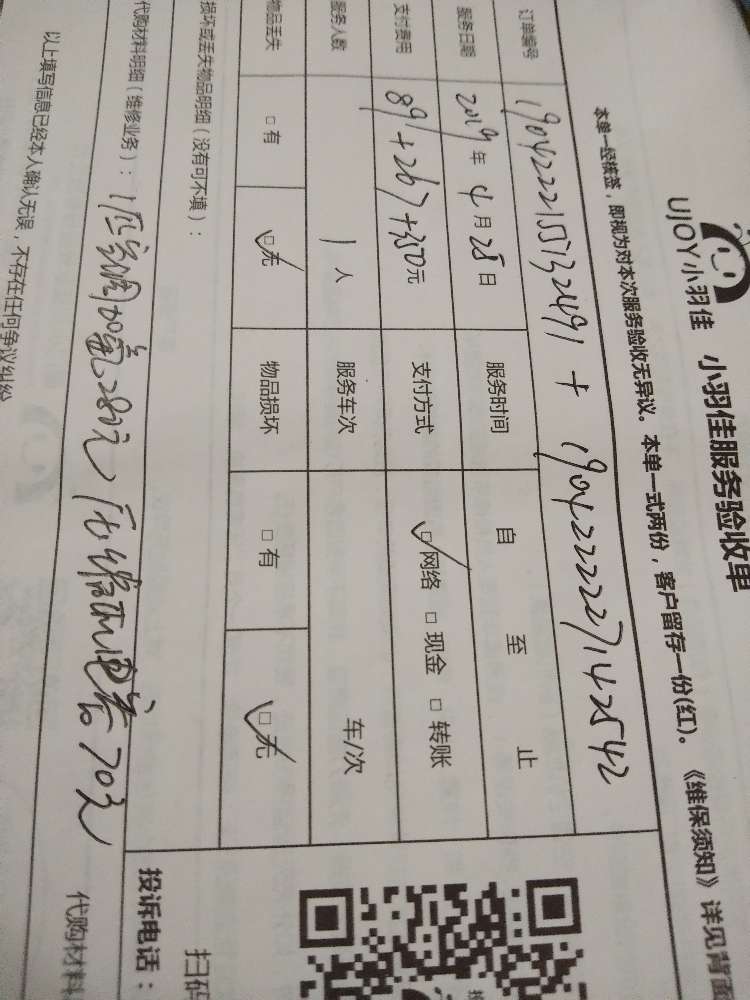 UJOY小羽佳 小羽佳服务验收单
本单一经核签，即视为对本次服务验收无异议。本单一式两份，客户留存一份(红)。《维保须知》详见背面
订单编号
服务日期 2019年4月25日 服务时间 自 至 止
支付费用 89+267+350元 支付方式 网络 □现金 □转账
服务人数 1人 服务车次 车/次
物品丢失 □有 □无 物品损坏 □有 □无
损坏或丢失物品明细（没有可不填）：
代购材料明细（维修业务）：1匹空调加氟280元 压缩机电容70元
以上填写信息已经本人确认无误，不存在任何争议纠纷
投诉电话：
扫码
代购材料